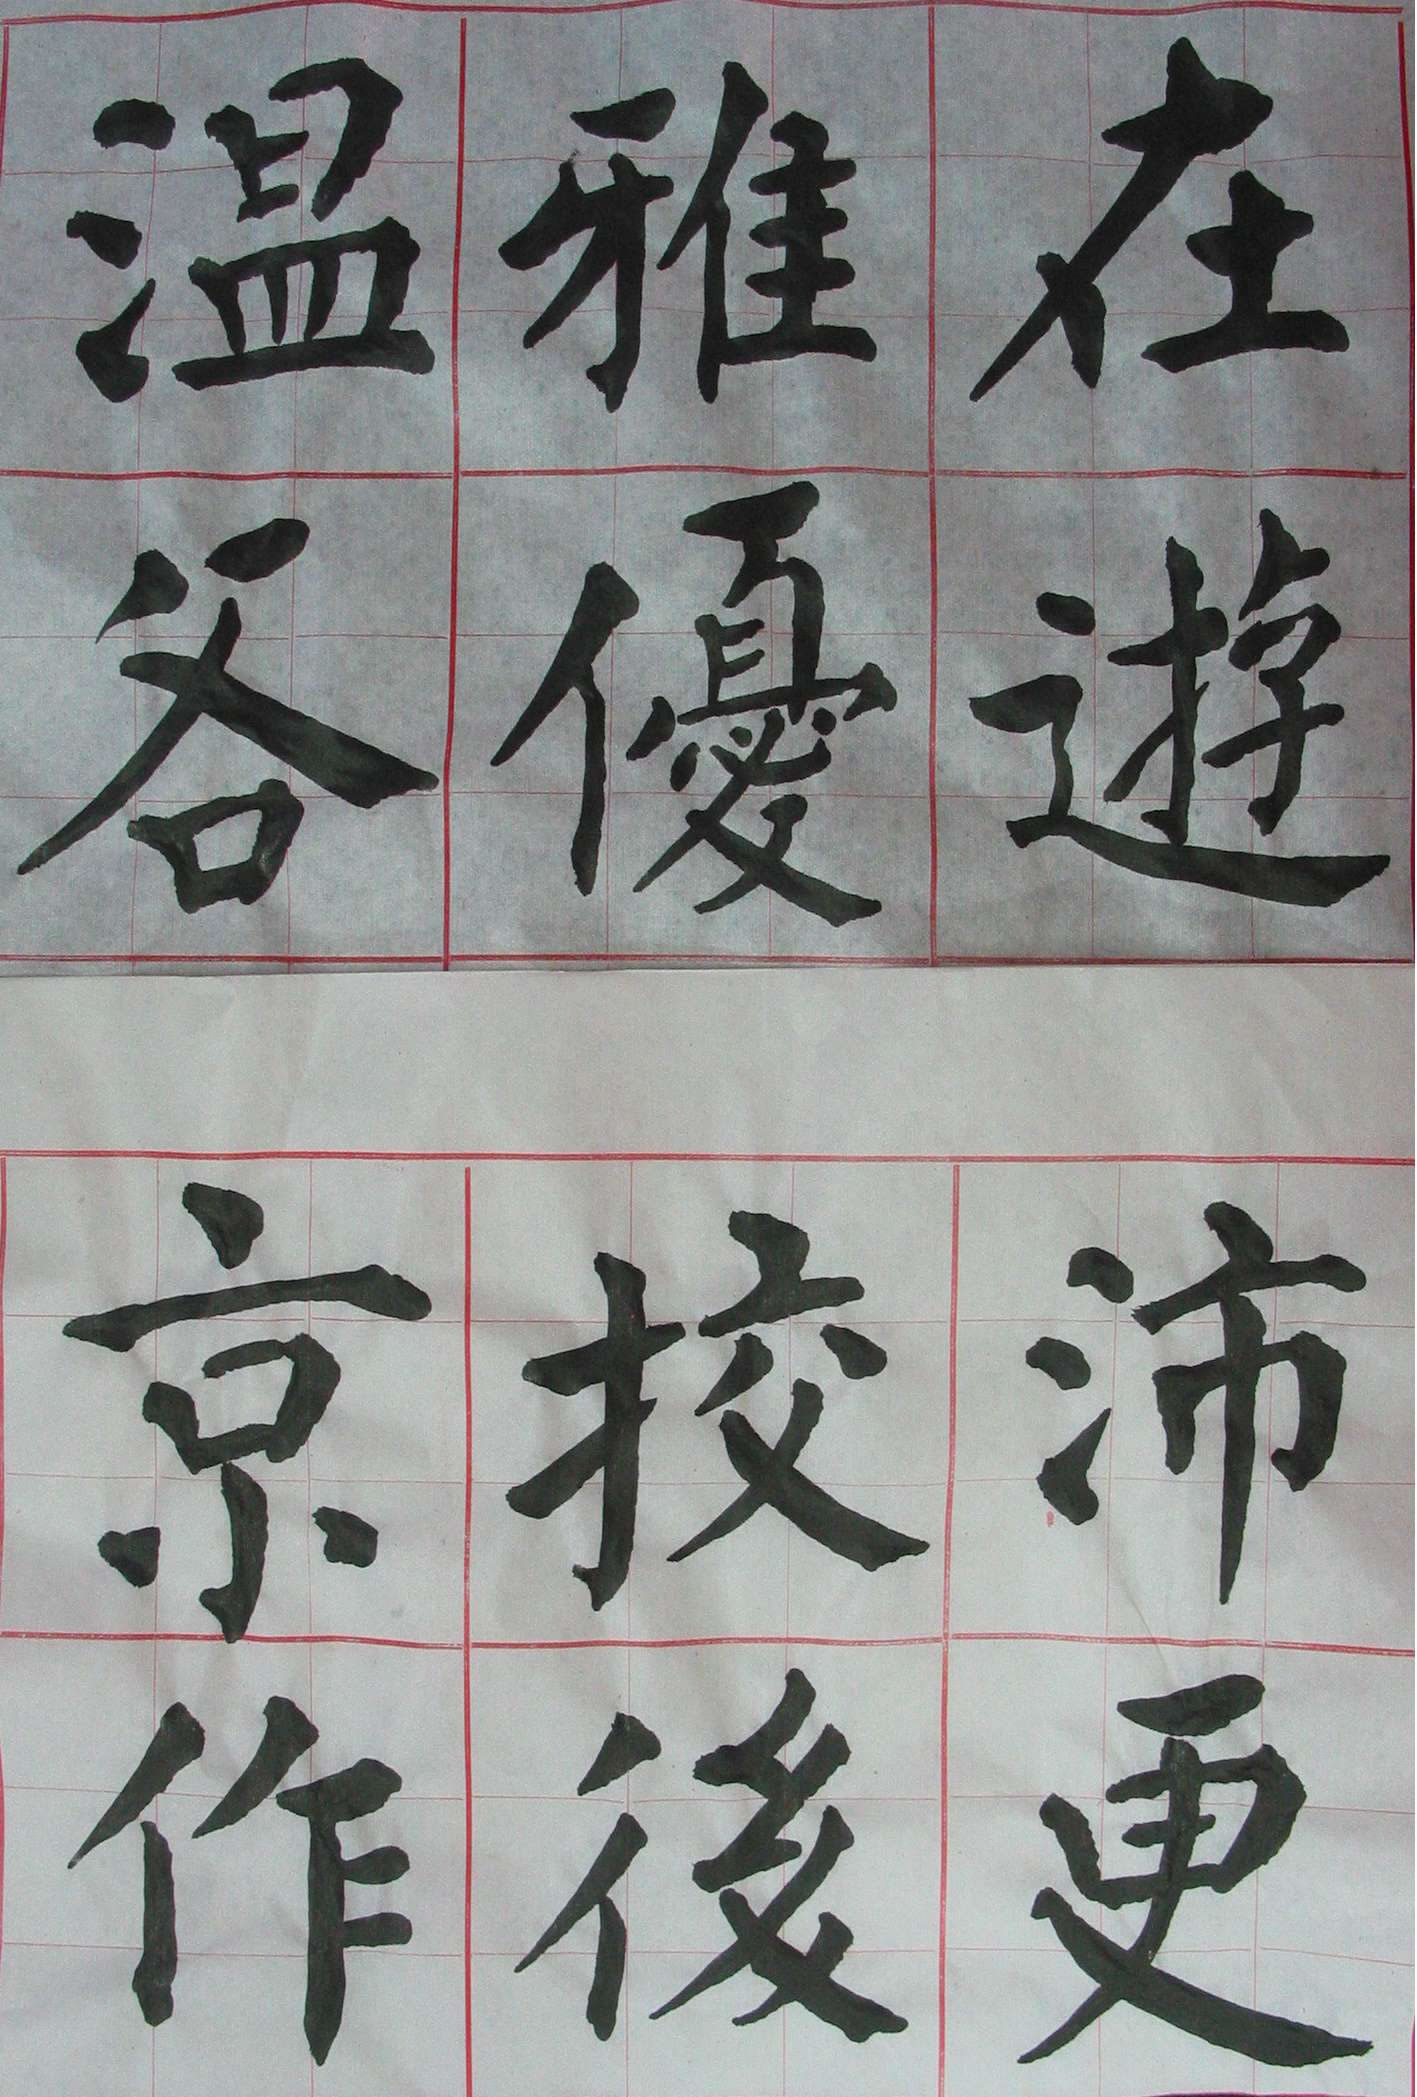 在遊
雅優
温谷
沛更
挍後
京作